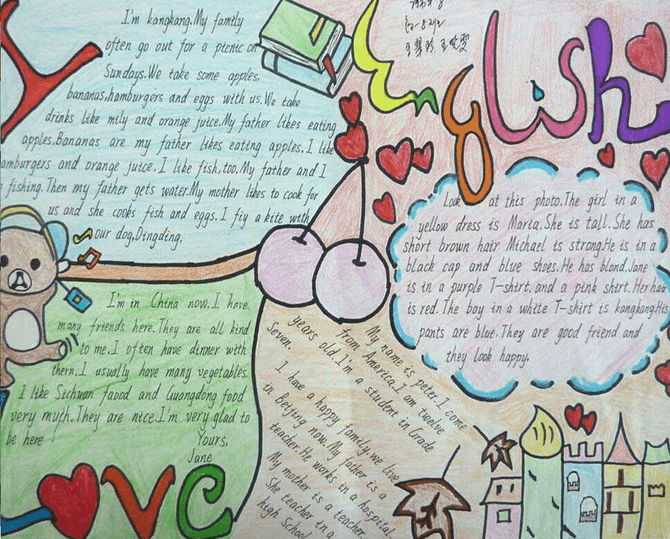 I'm kangkang.My family
often go out for a picnic on
Sundays.We take some apples,
bananas,hamburgers and eggs with us.We take
drinks like mily and orange juice.My father likes eating
apples.Bananas are my father likes eating apples.I like
hamburgers and orange juice.I like fish,too.My father and I
fishing.Then my father gets water.My mother likes to cook for
us and she cooks fish and eggs.I fiy a kite with
our dog,Dingding.
English
Look at this photo.The girl in a
yellow dress is Maria.She is tall.She has
short brown hair Michael is strong.He is in a
black cap and blue shoes.He has blond.Jane
is in a purple T-shirt.and a pink shirt.Her hair
is red.The boy in a white T-shirt is kangkong.His
pants are blue.They are good friend and
they look happy.
I'm in China now.I have
many friends here.They are all kind
to me.I often have dinner with
them.I usually have many vegetables.
I like Sichuan faood and Guangdong food
very much.They are nice.I'm very glad to
be here
Yours,
Jane
My name is peter.I come
from America.I am twelve
years old.I'm a student in Grade
Seven.
I have a happy family.we live
in Beijing now.My father is a
teacher.He works in a hospital.
My mother is a teacher
She teacher in a
high School
Love